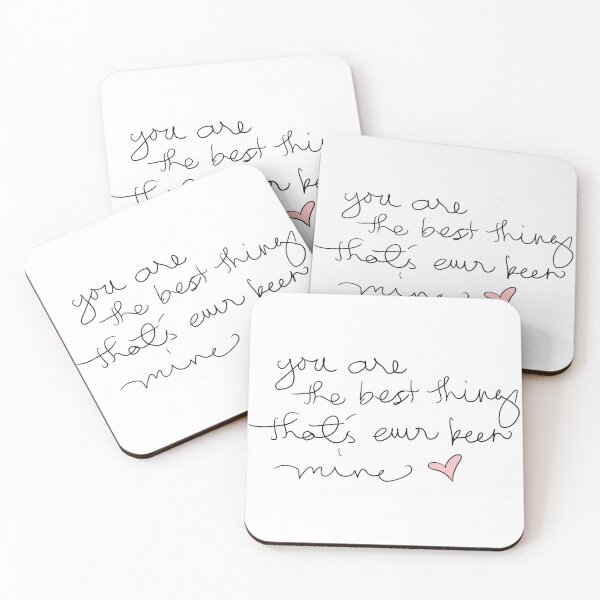 you are
the best
you are
the best thing
that's ever been
mine
you are
the best thing
that's ever been
mine
you are
the best thing
that's ever been
mine